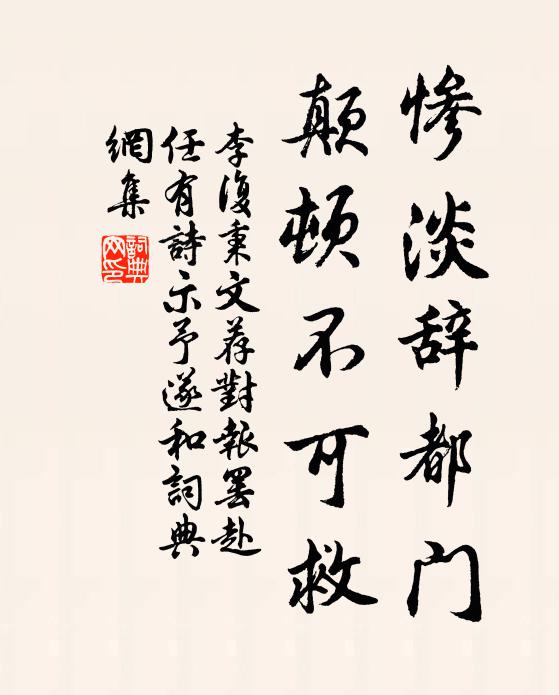 惨淡辞都门
颠顿不可救
李復秉文荐對報罢赴
任有詩示予遂和詞典
網集
詞典網印